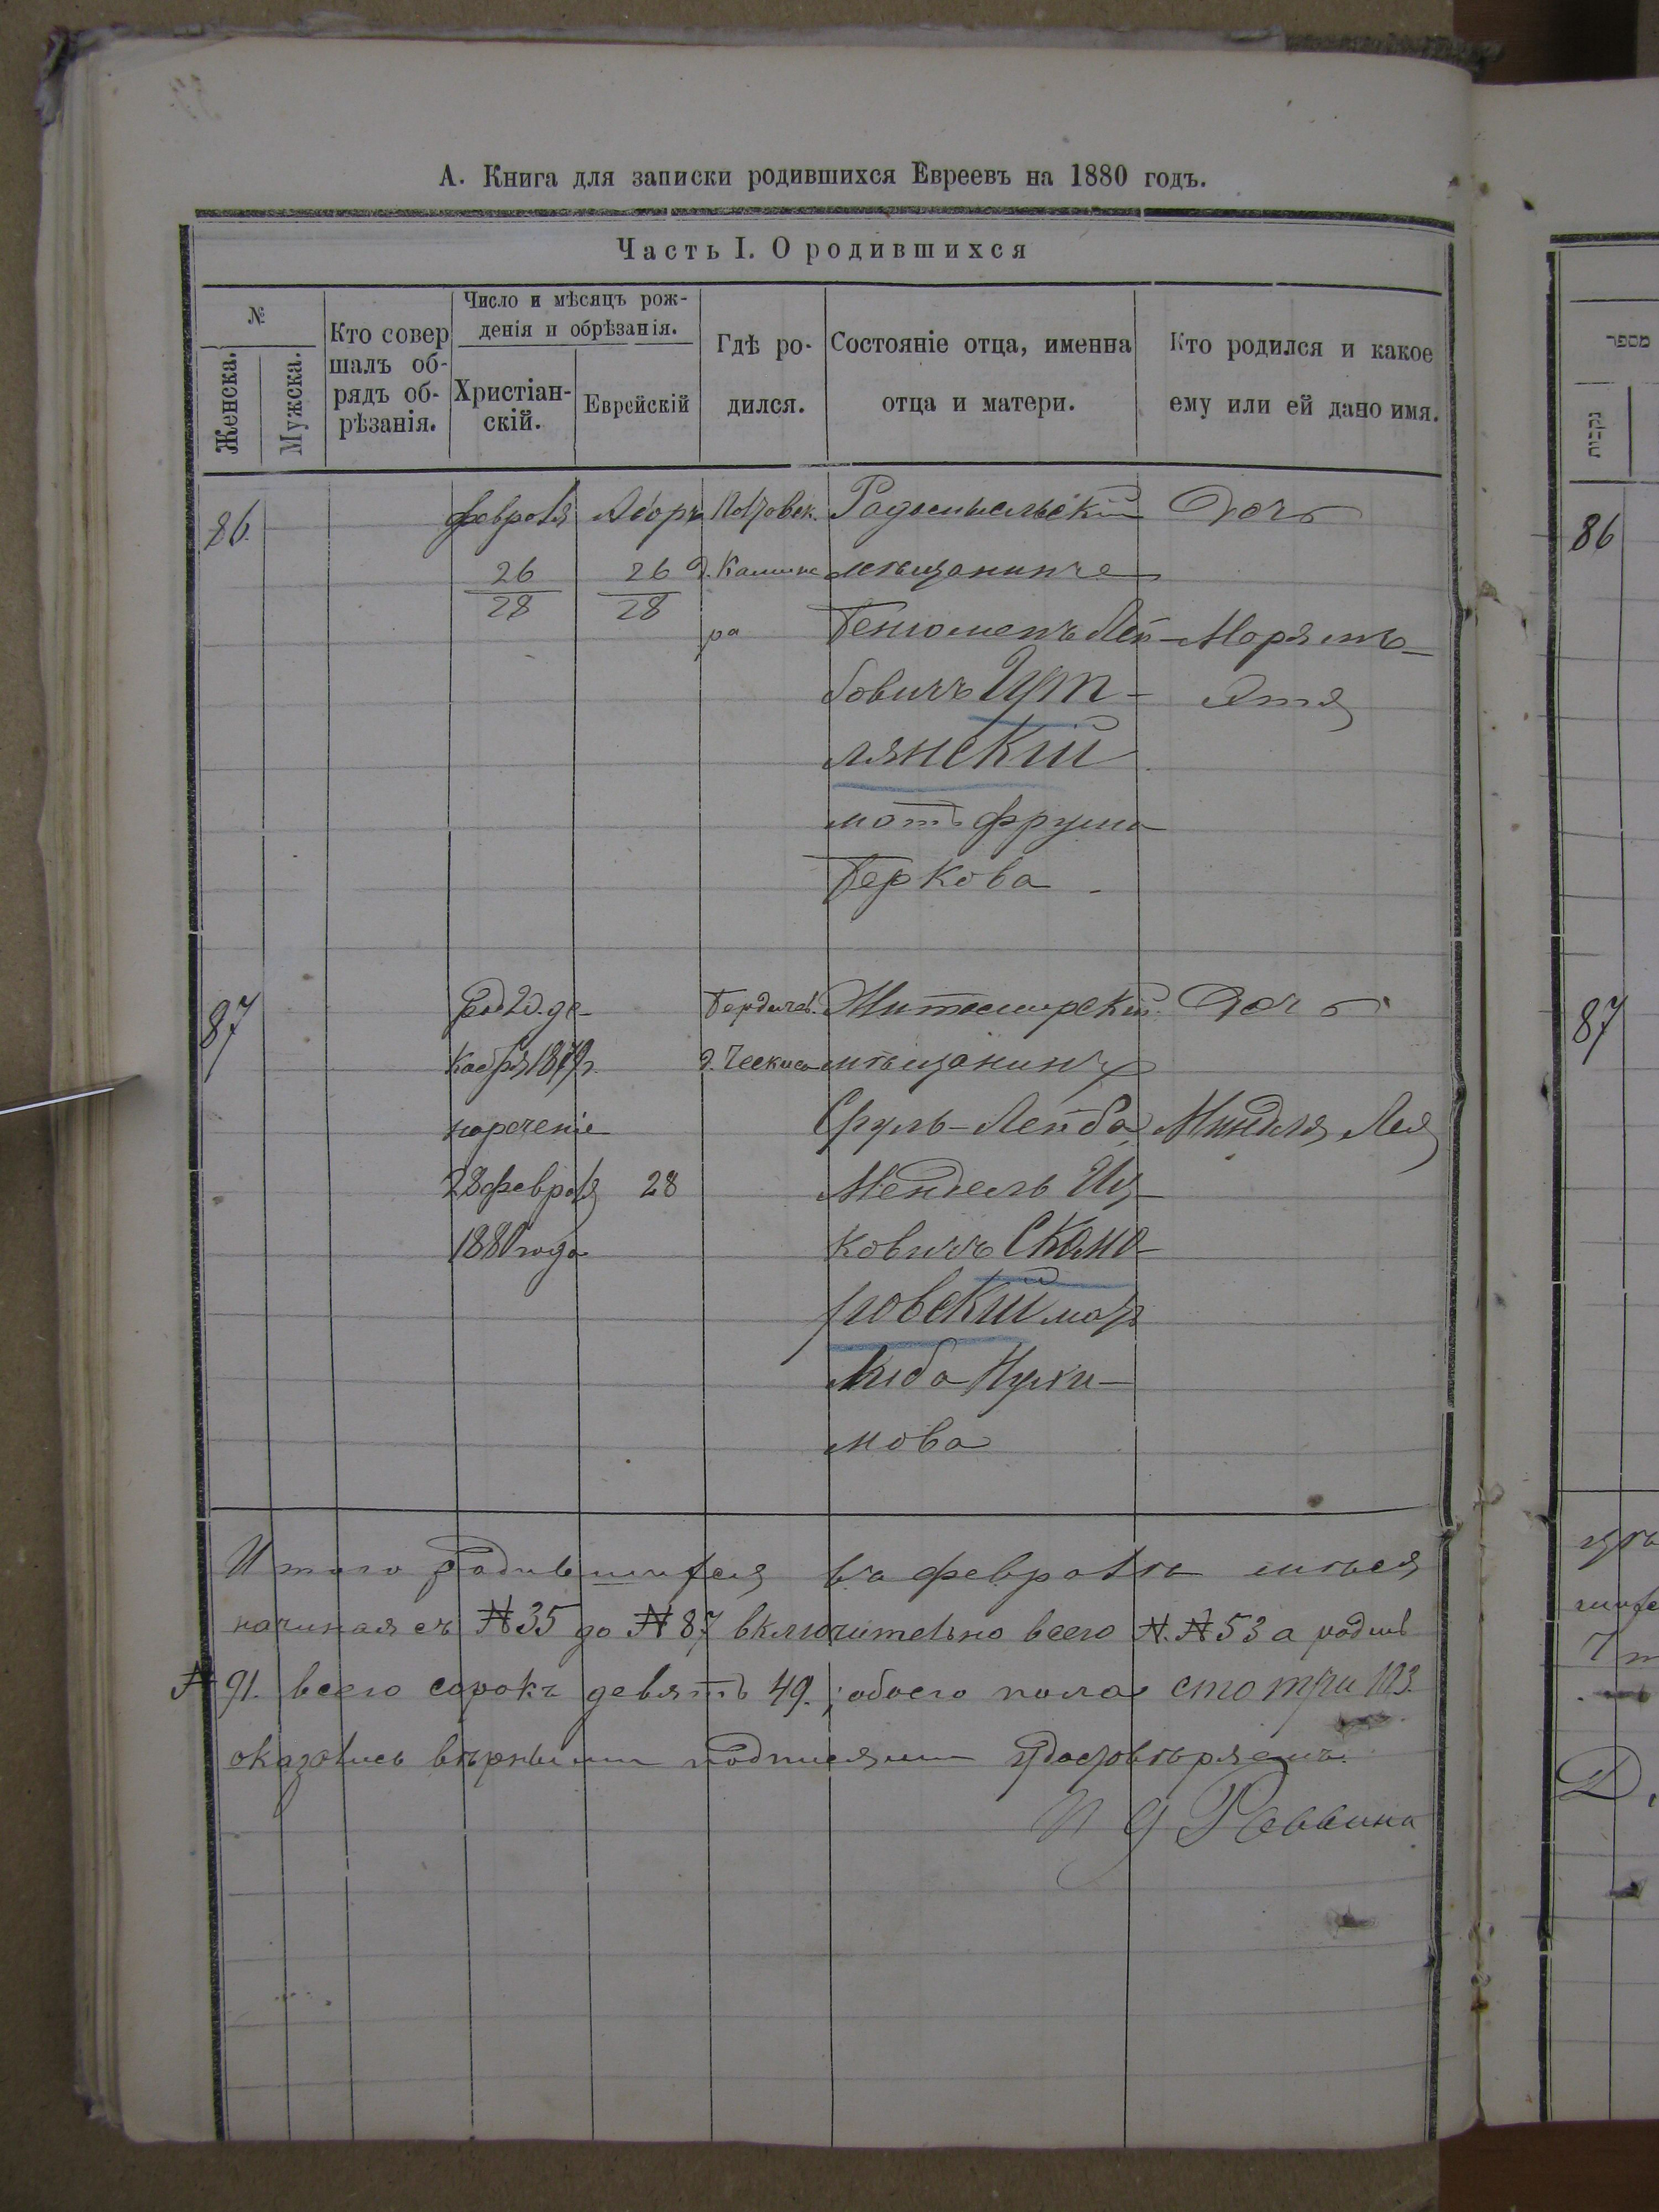 А. Книга для записки родившихся Евреевъ на 1880 годъ.
Часть I. О родившихся
№
Женска.
Мужска.
Кто совер
шалъ об-
рядъ об-
рѣзанія.
Число и мѣсяцъ рож-
денія и обрѣзанія.
Христіан-
скій.
Еврейскій
Гдѣ ро-
дился.
Состояніе отца, именна
отца и матери.
Кто родился и какое
ему или ей дано имя.
86.
февраля
26
28
Адоръ
26
28
д.
ра
Радомысльскій
мѣщанинъ
Бенюменъ Лей-
бовичъ Цут-
лянскій
мать Фрума
Беркова
Дочь
Марьямъ
87
род 20. де-
кабря 1879г.
нареченіе
28 февраля
1880 года
28
Бердичев.
д.
Житомирскій
мѣщанинъ
Сруль-Лейба
Мендель Иц-
ковичъ Скомо-
ровскій мать
Либа
мова
Дочь
Миндля Лея
Итого родившихся въ февралѣ мѣсяц
начиная съ № 35 до № 87 включительно всего №.№ 53 а родив
№ 91. всего сорокъ девять 49.; обоего пола сто три 103.
оказались вѣрными подписями удостовѣряемъ.
И Д Раввина
מספר
נקבות
86
87